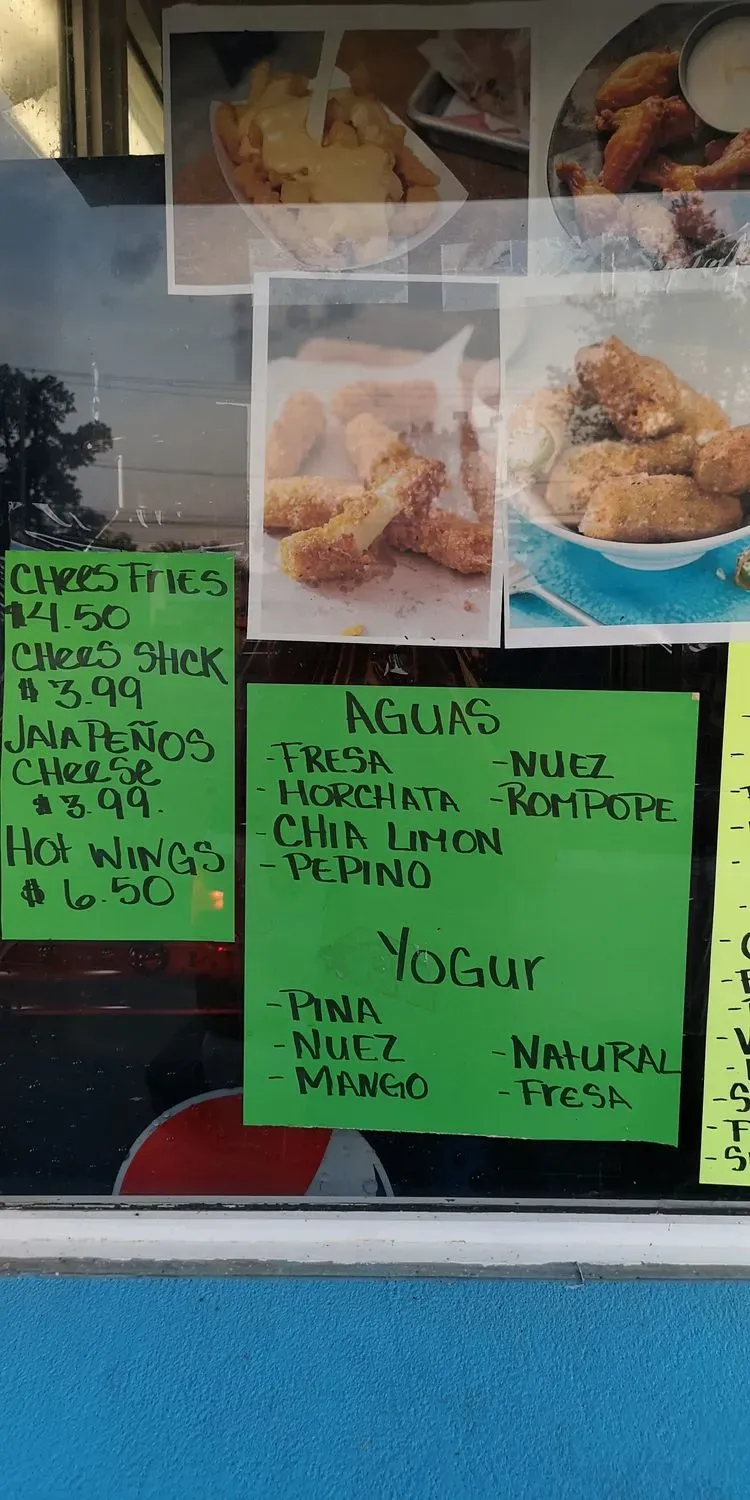 CHEES FRIES
$4.50
CHEES STICK
$3.99
JALAPEÑOS
CHEESE
$3.99.
HOT WINGS
$6.50
AGUAS
-FRESA
- HORCHATA
-CHIA LIMON
- PEPINO
-NUEZ
-ROMPOPE
YOGUR
-PINA
-NUEZ
- MANGO
-NATURAL
-FRESA